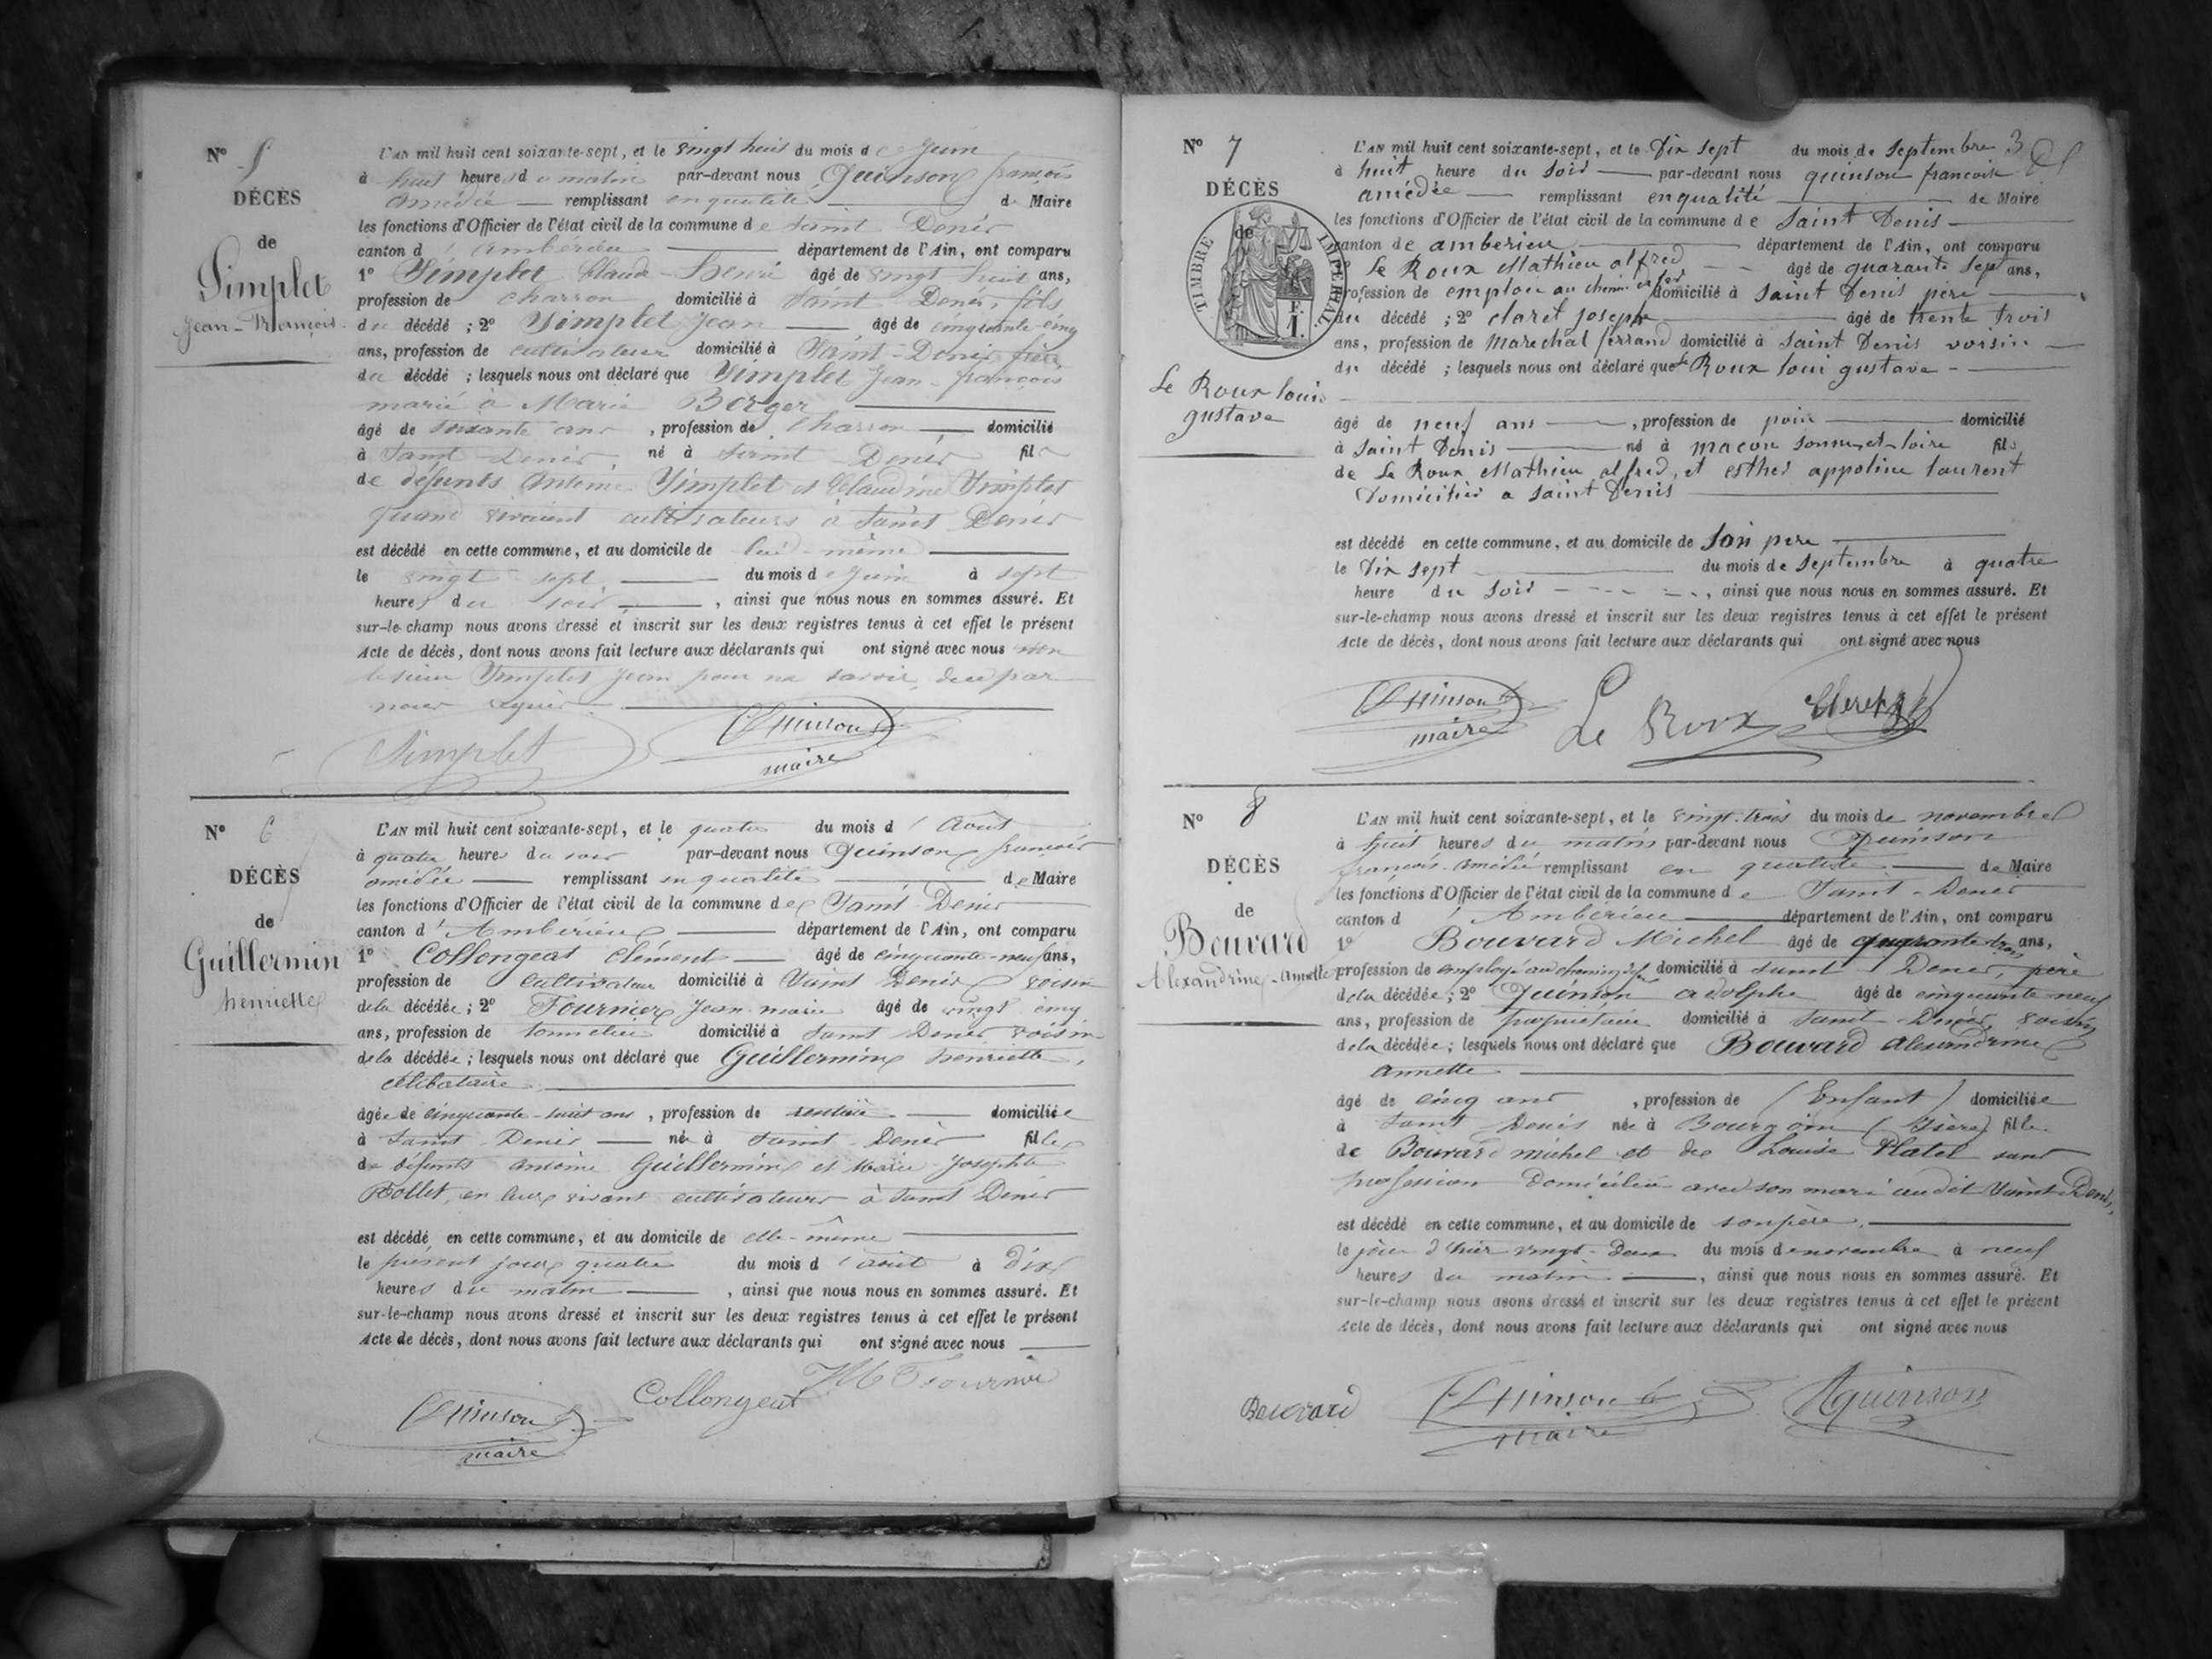 N° 5
DÉCÈS
de
Simplet
Jean-François
L'AN mil huit cent soixante-sept, et le vingt huit du mois de Juin
à huit heures du matin par-devant nous Quinson françois
Amédée remplissant en qualité de Maire
les fonctions d'Officier de l'état civil de la commune de Saint Denis
canton d'Ambérieu département de l'Ain, ont comparu
1° Simplet Claude-Henri âgé de vingt huit ans,
profession de charron domicilié à Saint Denis, fils
du décédé ; 2° Simplet Jean âgé de cinquante-cinq
ans, profession de cultivateur domicilié à Saint-Denis frère
du décédé ; lesquels nous ont déclaré que Simplet Jean-françois
marié à Marie Berger
âgé de soixante ans, profession de Charron domicilié
à Saint-Denis, né à Saint-Denis fils
de défunts Antoine Simplet et Claudine Simplet
quand vivaient cultivateurs à Saint Denis
est décédé en cette commune, et au domicile de lui-même
le vingt sept du mois de Juin à sept
heures du soir, ainsi que nous nous en sommes assuré. Et
sur-le-champ nous avons dressé et inscrit sur les deux registres tenus à cet effet le présent
Acte de décès, dont nous avons fait lecture aux déclarants qui ont signé avec nous non
le sieur Simplet Jean pour ne savoir, de ce par
nous requis
Simplet
Quinson
maire
N° 6
DÉCÈS
de
Guillermin
henriette
L'AN mil huit cent soixante-sept, et le quatre du mois d'Août
à quatre heures du soir par-devant nous Quinson françois
amédée remplissant en qualité de Maire
les fonctions d'Officier de l'état civil de la commune de Saint Denis
canton d'Ambérieu département de l'Ain, ont comparu
1° Collongeat Clément âgé de cinquante-neuf ans,
profession de cultivateur domicilié à Saint Denis voisin
de la décédée ; 2° Fournier Jean-marie âgé de vingt cinq
ans, profession de tonnelier domicilié à Saint Denis voisin
de la décédée ; lesquels nous ont déclaré que Guillermin henriette,
célibataire
âgée de cinquante-huit ans, profession de rentière domiciliée
à Saint-Denis née à Saint-Denis fille
de défunts antoine Guillermin et Marie Josephte
Bollet, en leur vivant cultivateurs à Saint Denis
est décédé en cette commune, et au domicile de elle-même
le présent jour quatre du mois d'août à dix
heures du matin, ainsi que nous nous en sommes assuré. Et
sur-le-champ nous avons dressé et inscrit sur les deux registres tenus à cet effet le présent
Acte de décès, dont nous avons fait lecture aux déclarants qui ont signé avec nous
Collongeat
Fournier
Quinson
maire
N° 7
DÉCÈS
de
TIMBRE IMPERIAL
F.
1.
Le Roux louis
gustave
L'AN mil huit cent soixante-sept, et le Dix sept du mois de septembre 3
à huit heure du soir par-devant nous quinson francois
amédée remplissant en qualité de Maire
les fonctions d'Officier de l'état civil de la commune de Saint Denis
canton de amberieu département de l'Ain, ont comparu
Le Roux Mathieu alfred âgé de quarante sept ans,
profession de emploie au chemin de fer domicilié à Saint Denis père
du décédé ; 2° claret joseph âgé de trente trois
ans, profession de marechal ferrand domicilié à Saint Denis voisin
du décédé ; lesquels nous ont déclaré que le Roux loui gustave
âgé de neuf ans, profession de poin domicilié
à Saint Denis né à macon sonne et loire fils
de Le Roux Mathieu alfred, et esther appoline laurent
Domicilies a Saint Denis
est décédé en cette commune, et au domicile de son pere
le Dix sept du mois de Septembre à quatre
heure du soir, ainsi que nous nous en sommes assuré. Et
sur-le-champ nous avons dressé et inscrit sur les deux registres tenus à cet effet le présent
Acte de décès, dont nous avons fait lecture aux déclarants qui ont signé avec nous
Quinson
maire
Le Roux
N° 8
DÉCÈS
de
Bouvard
Alexandrine-Annette
L'AN mil huit cent soixante-sept, et le vingt-trois du mois de novembre
à huit heures du matin par-devant nous Quinson
françois-Amédée remplissant en qualité de Maire
les fonctions d'Officier de l'état civil de la commune de Saint-Denis
canton d'Ambérieu département de l'Ain, ont comparu
1° Bouvard Michel âgé de quarante trois ans,
profession de employé au chemin de fer domicilié à Saint Denis, père
de la décédée ; 2° Quinson adolphe âgé de cinquante neuf
ans, profession de propriétaire domicilié à Saint-Denis, voisin
de la décédée ; lesquels nous ont déclaré que Bouvard Alexandrine
annette
âgé de cinq ans, profession de (Enfant) domiciliée
à Saint Denis née à Bourgoin (Isère) fille
de Bouvard michel et de Louise Platel sans
profession domiciliée avec son mari audit Saint Denis,
est décédé en cette commune, et au domicile de son père,
le jour d'hier vingt-deux du mois de novembre à neuf
heures du matin, ainsi que nous nous en sommes assuré. Et
sur-le-champ nous avons dressé et inscrit sur les deux registres tenus à cet effet le présent
Acte de décès, dont nous avons fait lecture aux déclarants qui ont signé avec nous
Bouvard
Quinson
maire
Aquinson